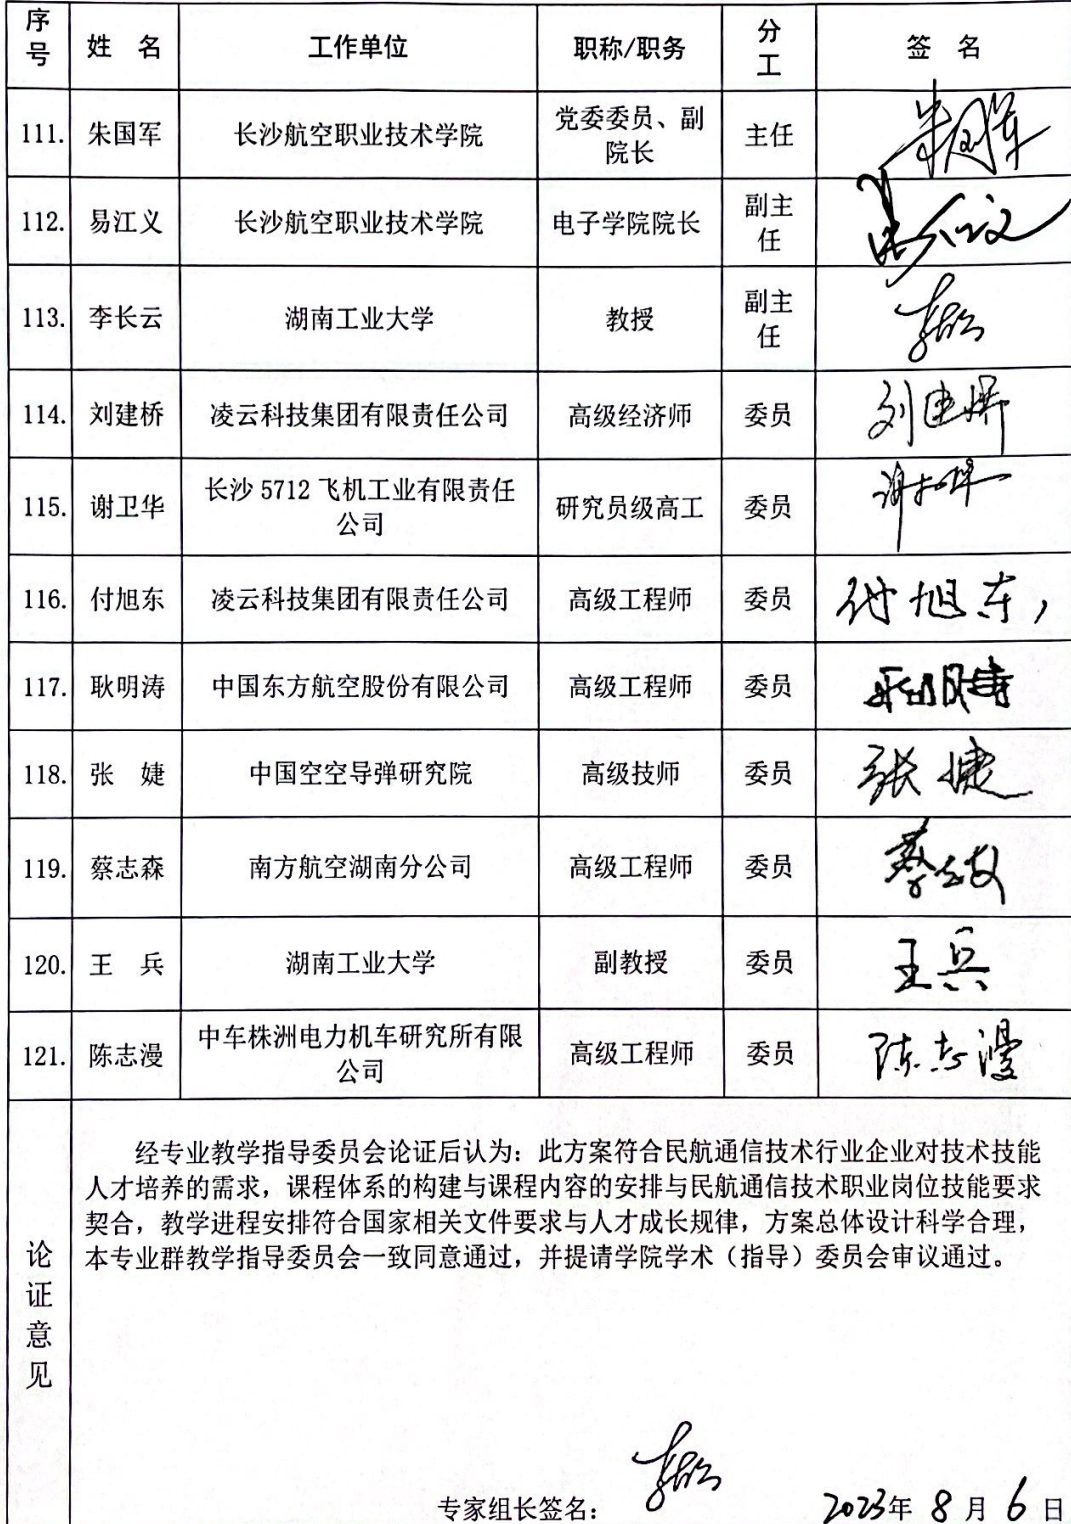 序号 姓 名 工作单位 职称/职务 分工 签 名
111. 朱国军 长沙航空职业技术学院 党委委员、副院长 主任 朱国军
112. 易江义 长沙航空职业技术学院 电子学院院长 副主任
113. 李长云 湖南工业大学 教授 副主任 李长云
114. 刘建桥 凌云科技集团有限责任公司 高级经济师 委员 刘建桥
115. 谢卫华 长沙5712飞机工业有限责任公司 研究员级高工 委员 谢卫华
116. 付旭东 凌云科技集团有限责任公司 高级工程师 委员 付旭东
117. 耿明涛 中国东方航空股份有限公司 高级工程师 委员 耿明涛
118. 张 婕 中国空空导弹研究院 高级技师 委员 张婕
119. 蔡志森 南方航空湖南分公司 高级工程师 委员
120. 王 兵 湖南工业大学 副教授 委员 王兵
121. 陈志漫 中车株洲电力机车研究所有限公司 高级工程师 委员 陈志漫
论证意见
经专业教学指导委员会论证后认为：此方案符合民航通信技术行业企业对技术技能
人才培养的需求，课程体系的构建与课程内容的安排与民航通信技术职业岗位技能要求
契合，教学进程安排符合国家相关文件要求与人才成长规律，方案总体设计科学合理，
本专业群教学指导委员会一致同意通过，并提请学院学术（指导）委员会审议通过。
专家组长签名： 李长云 2023年 8 月 6 日